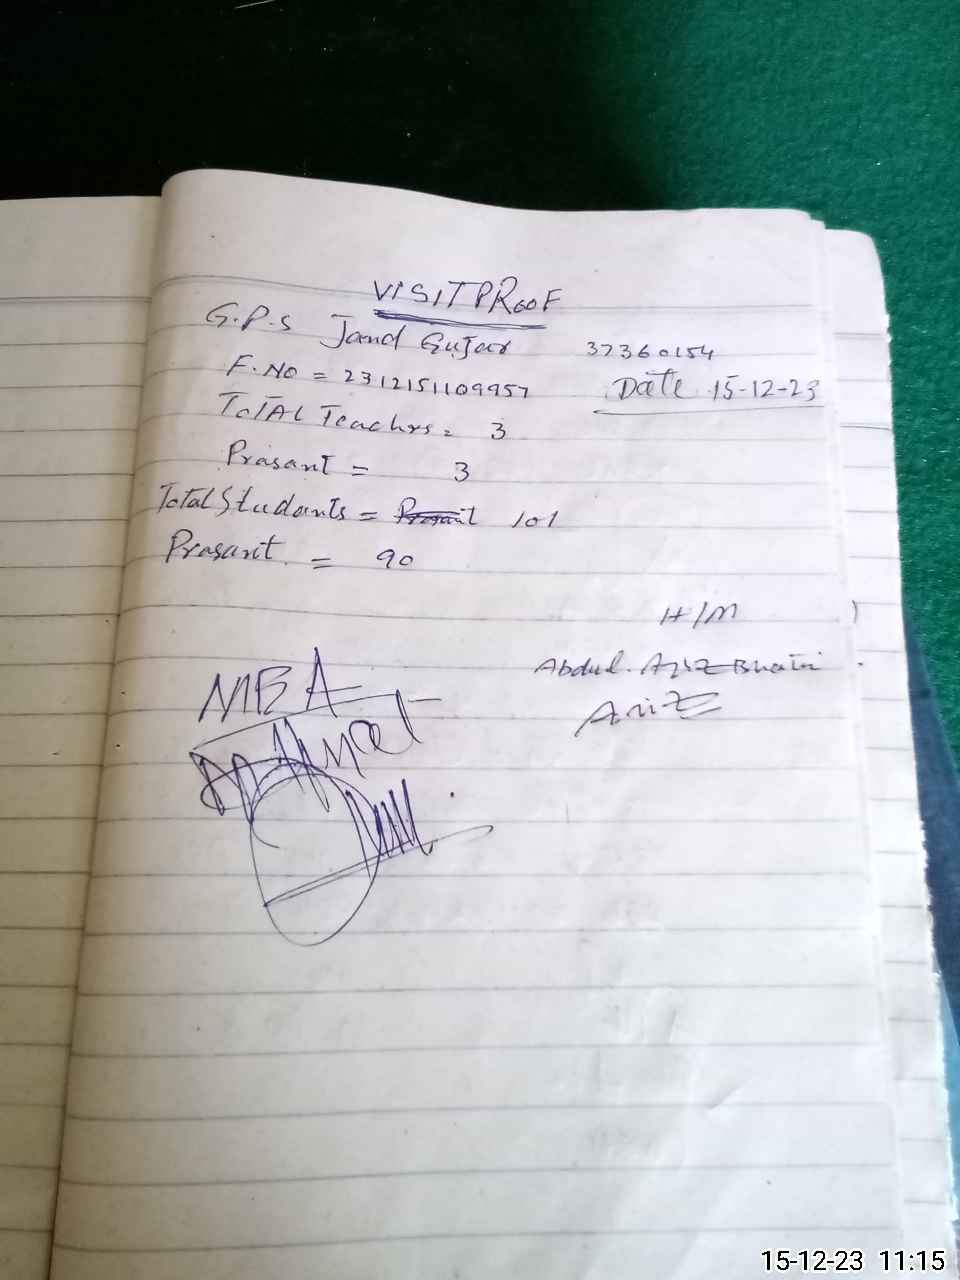 VISIT PRooF
G.P.S Jand Gujar 37360154
F.No = 2312151109957 Date 15-12-23
ToTAL Teachrs = 3
Prasant = 3
Total Students = 101
Prasant = 90
H/M
Abdul. Aziz Bhatti
Aziz
MEA
15-12-23 11:15